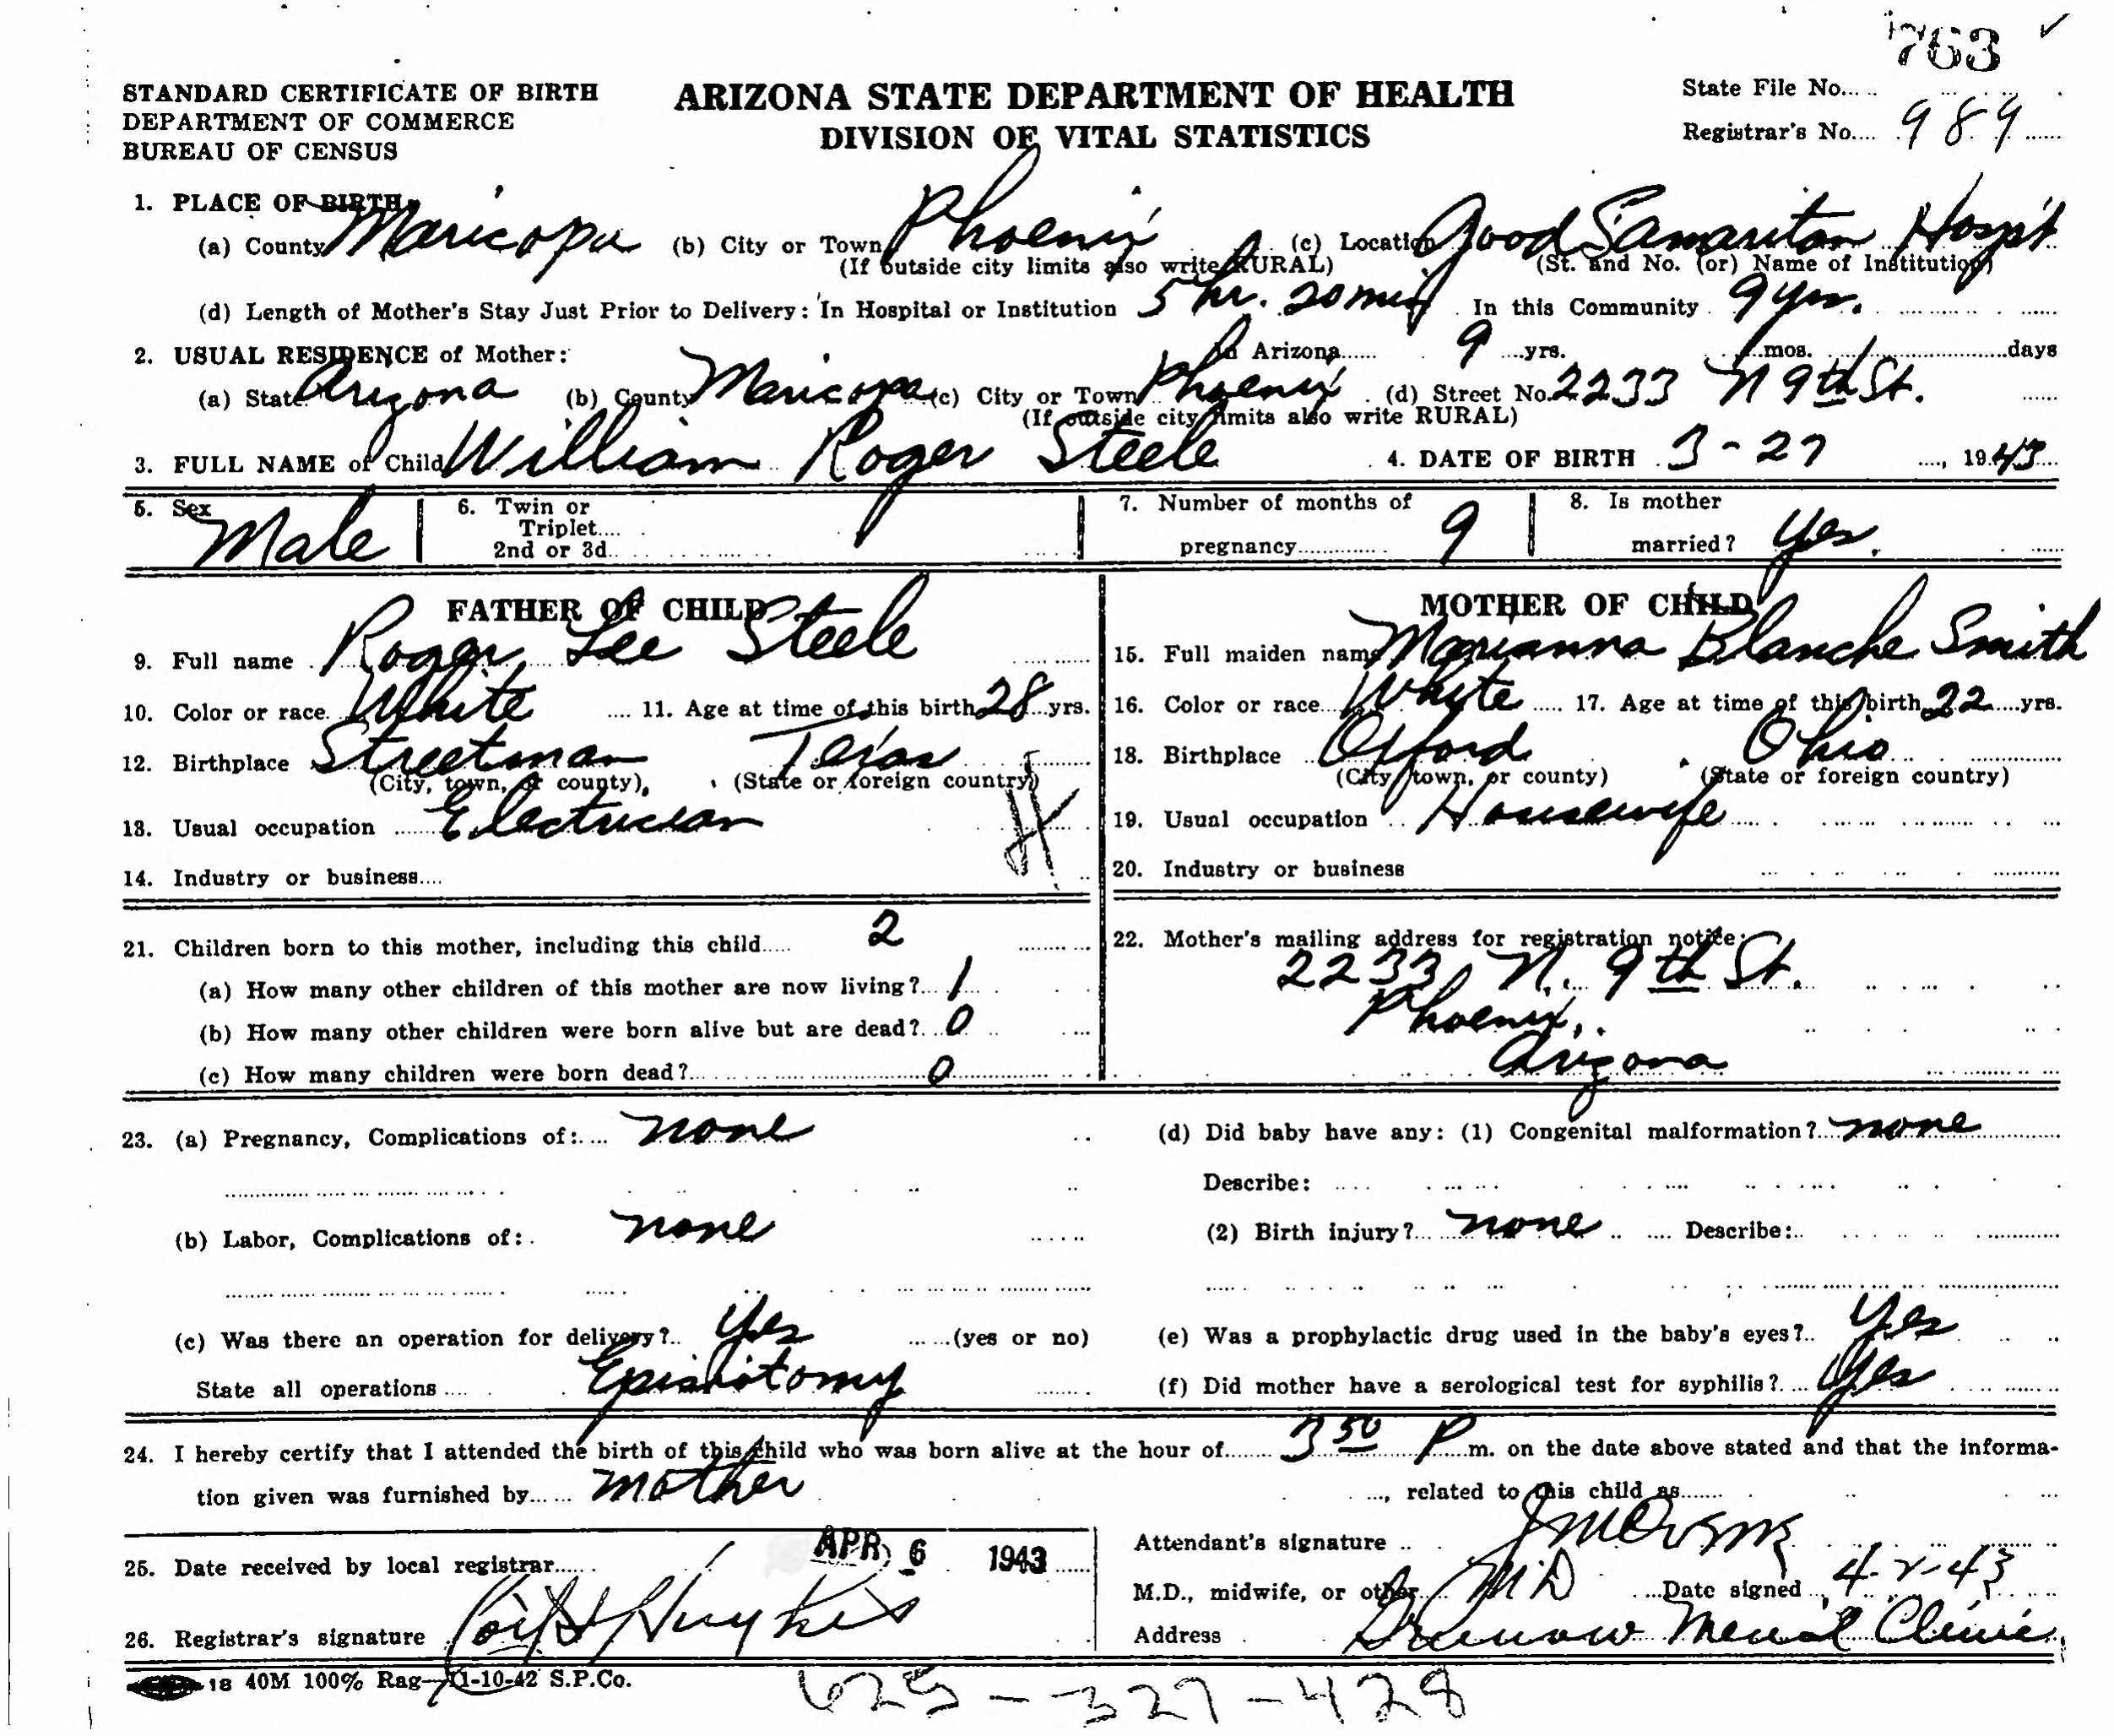 763 ✓
STANDARD CERTIFICATE OF BIRTH
DEPARTMENT OF COMMERCE
BUREAU OF CENSUS
ARIZONA STATE DEPARTMENT OF HEALTH
DIVISION OF VITAL STATISTICS
State File No.
Registrar's No. 989
1. PLACE OF BIRTH
(a) County Maricopa (b) City or Town Phoenix (c) Location Good Samaritan Hospt
(If outside city limits also write RURAL) (St. and No. (or) Name of Institution)
(d) Length of Mother's Stay Just Prior to Delivery: In Hospital or Institution 5 hr. 20 min In this Community 9 yrs.
2. USUAL RESIDENCE of Mother: In Arizona 9 yrs. mos. days
(a) State Arizona (b) County Maricopa (c) City or Town Phoenix (d) Street No. 2233 N 9th St.
(If outside city limits also write RURAL)
3. FULL NAME of Child William Roger Steele 4. DATE OF BIRTH 3-27, 1943
5. Sex Male 6. Twin or Triplet 2nd or 3d 7. Number of months of pregnancy 9 8. Is mother married? Yes.
FATHER OF CHILD
9. Full name Roger Lee Steele
10. Color or race White 11. Age at time of this birth 28 yrs.
12. Birthplace Streetman Texas
(City, town, or county), (State or foreign country)
13. Usual occupation Electrician
14. Industry or business
MOTHER OF CHILD
15. Full maiden name Marianna Blanche Smith
16. Color or race White 17. Age at time of this birth 22 yrs.
18. Birthplace Oxford Ohio
(City, town, or county) (State or foreign country)
19. Usual occupation Housewife
20. Industry or business
21. Children born to this mother, including this child 2
(a) How many other children of this mother are now living? 1
(b) How many other children were born alive but are dead? 0
(c) How many children were born dead? 0
22. Mother's mailing address for registration notice:
2233 N. 9th St.
Phoenix,
Arizona
23. (a) Pregnancy, Complications of: none
(b) Labor, Complications of: none
(c) Was there an operation for delivery? Yes (yes or no)
State all operations Episiotomy
(d) Did baby have any: (1) Congenital malformation? none
Describe:
(2) Birth injury? none Describe:
(e) Was a prophylactic drug used in the baby's eyes? Yes
(f) Did mother have a serological test for syphilis? Yes
24. I hereby certify that I attended the birth of this child who was born alive at the hour of 3 50 P m. on the date above stated and that the informa-
tion given was furnished by mother, related to this child as
25. Date received by local registrar APR 6 1943
26. Registrar's signature
Attendant's signature
M.D., midwife, or other MD Date signed 4-2-43
Address Clinic
18 40M 100% Rag—11-10-42 S.P.Co.
625-327-428